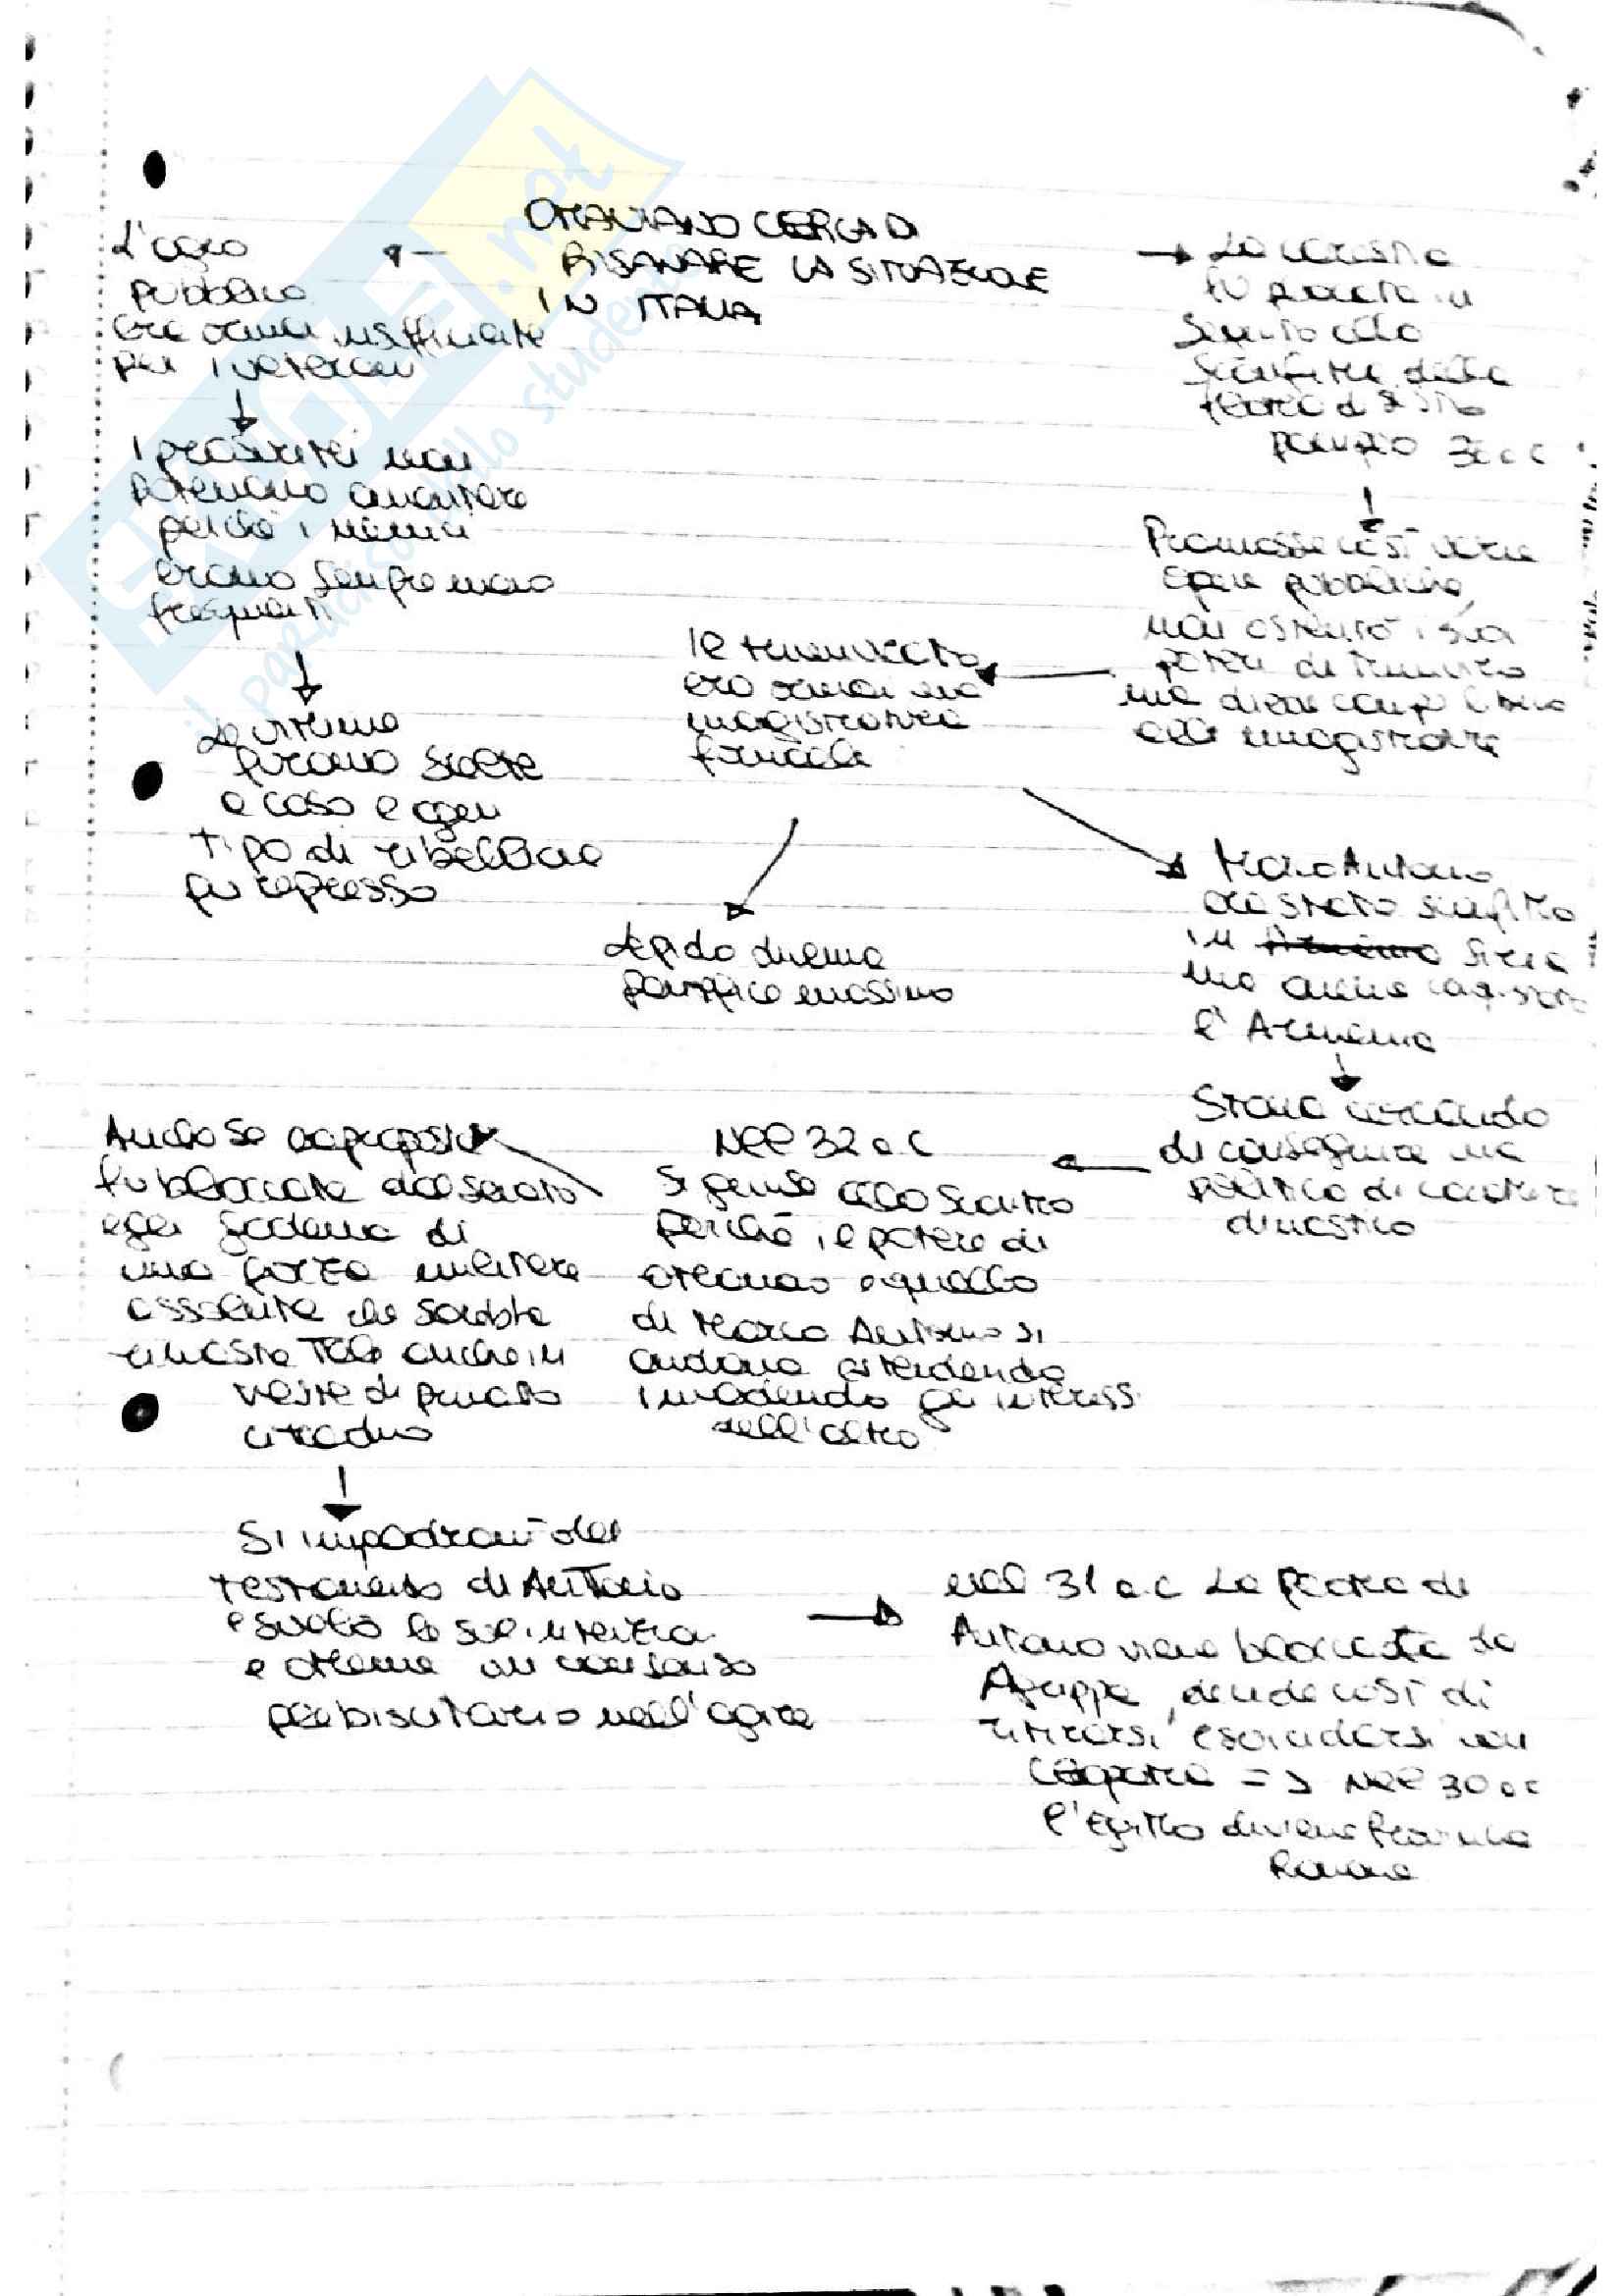 OTTAVIANO CERCA DI
RISANARE LA SITUAZIONE
IN ITALIA
L'agro
pubblico
era ormai insufficiente
per i veterani
I proscritti non
potevano aumentare
perché i nemici
erano sempre meno
frequenti
Le vittime
furono scelte
a caso e ogni
tipo di ribellione
fu represso
La carestia
fu placata in
seguito alla
sconfitta della
flotta di Sesto
Pompeo 36 a.c
Promosse così varie
opere pubbliche,
non ostentò i suoi
poteri di triumviro
ma diede campo libero
alle magistrature
Il triumvirato
era ormai una
magistratura
formale
Lepido divenne
pontefice massimo
Marco Antonio
era stato sconfitto
in Siria
ma aveva conquistato
l'Armenia
Stava cercando
di conseguire una
politica di carattere
dinastico
Nel 32 a.C
si giunse allo scontro
perché il potere di
Ottaviano e quello
di Marco Antonio si
andava estendendo
invadendo gli interessi
dell'altro
Anche se
dal senato
egli godeva di
una forza militare
assoluta che sarebbe
rimasta tale anche in
veste di privato
cittadino
Si impadronì del
testamento di Antonio
e svelò le sue intenzioni
e ottenne un consenso
plebiscitario nell'agire
nel 31 a.c La flotta di
Antonio viene bloccata da
Agrippa, decide così di
ritirarsi e suicidarsi con
Cleopatra => Nel 30 a.c
l'Egitto diviene provincia
Romana
SKUOLA.net
il paradiso dello studente